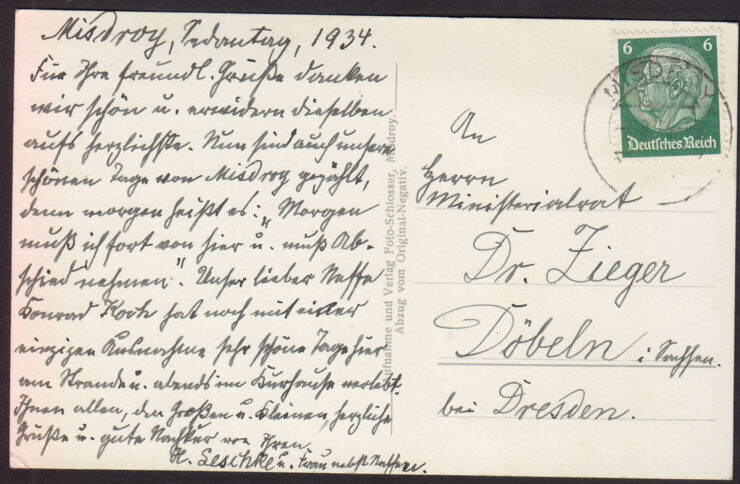 Misdroy, Sedantag, 1934.
Für Ihre freundl. Grüße danken
wir schön u. erwidern dieselben
aufs herzlichste. Nun sind auch unsere
schönen Tage von Misdroy gezählt,
denn morgen heißt es: „Morgen
muß ich fort von hier u. muß Ab-
schied nehmen“. Unser lieber Neffe
Konrad Koch hat noch mit einer
einzigen Ausnahme sehr schöne Tage hier
am Strande u. abends im Kurhause verlebt.
Ihnen allen, den Großen u. Kleinen, herzliche
Grüße u. gute Nachkur von Ihren
H. Leschke u. Frau nebst Neffen.
Aufnahme und Verlag Foto-Schlosser, Misdroy.
Abzug vom Original-Negativ.
6 6
Deutsches Reich
An
Herrn
Ministerialrat
Dr. Zieger
Döbeln i. Sachsen.
bei Dresden.